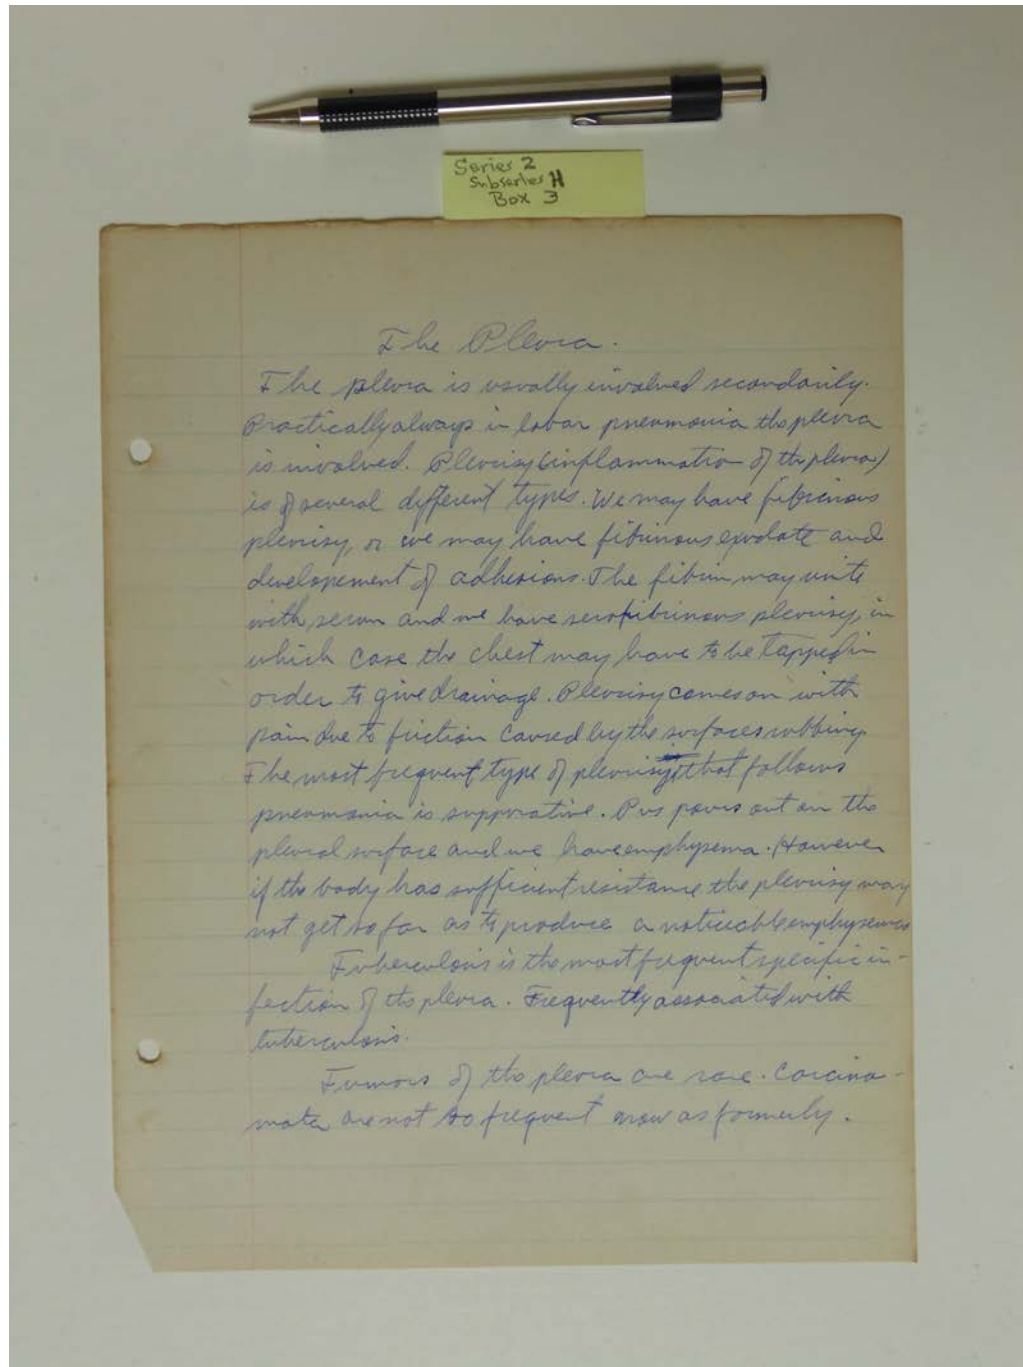 Series 2
Subseries H
Box 3
The Pleura.
The pleura is usually involved secondarily.
Practically always in lobar pneumonia the pleura
is involved. Pleurisy (inflammation of the pleura)
is of several different types. We may have fibrinous
pleurisy, or we may have fibrinous exudate and
developement of adhesions. The fibrin may unite
with serum and we have serofibrinous pleurisy, in
which case the chest may have to be tapped in
order to give drainage. Pleurisy comes on with
pain due to friction caused by the surfaces rubbing.
The most frequent type of pleurisy that follows
pneumonia is suppurative. Pus pours out on the
pleural surface and we have emphysema. However
if the body has sufficient resistance the pleurisy may
not get so far as to produce a noticeable emphysema
Tuberculosis is the most frequent specific in-
fection of the pleura. Frequently associated with
tuberculosis.
Tumors of the pleura are rare. Carcino-
mata are not so frequent now as formerly.